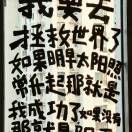 我要去
拯救世界了
如果明早太阳照
常升起那就是
我成功了如果没有
那就是